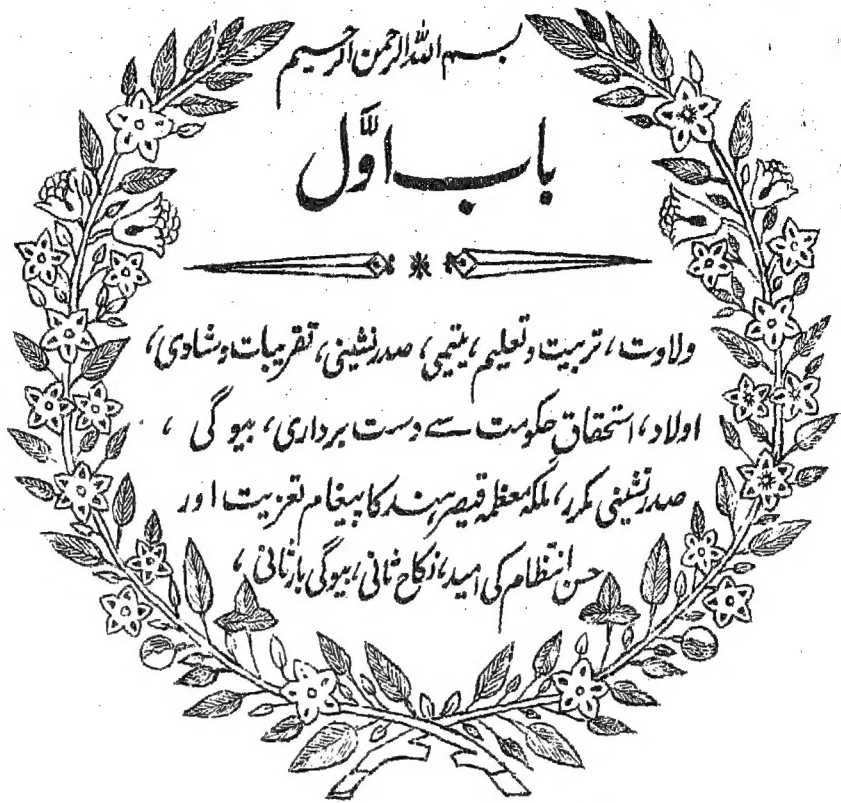 بسم اللہ الرحمن الرحیم
باب اوّل
ولادت، تربیت وتعلیم، یتیمی، صدر نشینی، تقریبات و شادی،
اولاد، استحقاق حکومت سے دست برداری، بیوگی،
صدر نشینی مکرر، ملکہ معظمہ قیصر ہند کا پیغام تعزیت اور
حسن انتظام کی امید، نکاح ثانی، بیوگی بارثانی،